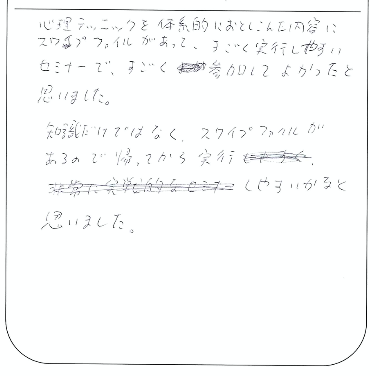 心理テクニックを体系的におとしこんだ内容に
スワイプファイルがあって、すごく実行しやすい
セミナーで、すごく 参加してよかったと
思いました。
知識だけではなく、スワイプファイルが
あるので帰ってから実行
しやすいかなと
思いました。